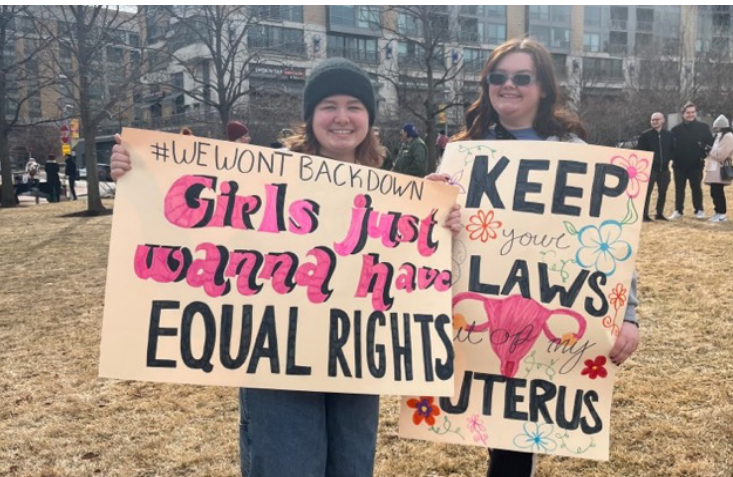 #WEWONTBACKDOWN
Girls just
wanna have
EQUAL RIGHTS
KEEP
your
LAWS
ut op my
UTERUS